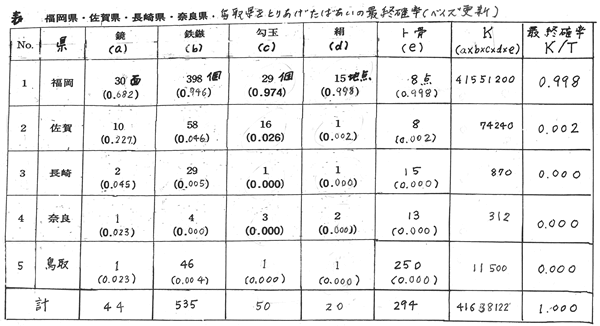 表 福岡県・佐賀県・長崎県・奈良県・鳥取県をとりあげたばあいの最終確率(ベイズ更新)
No. 県 鏡 (a) 鉄鏃 (b) 勾玉 (c) 絹 (d) ト骨 (e) K (a×b×c×d×e) 最終確率 K/T
1 福岡 30面 398個 29個 15地点 8点 41551200 0.998
(0.682) (0.946) (0.974) (0.998) (0.998)
2 佐賀 10 58 16 1 8 74240 0.002
(0.227) (0.046) (0.026) (0.002) (0.002)
3 長崎 2 29 1 1 15 870 0.000
(0.045) (0.005) (0.000) (0.000) (0.000)
4 奈良 1 4 3 2 13 312 0.000
(0.023) (0.000) (0.000) (0.000) (0.000)
5 鳥取 1 46 1 1 250 11500 0.000
(0.023) (0.004) (0.000) (0.000) (0.000)
計 44 535 50 20 294 41638122 1.000